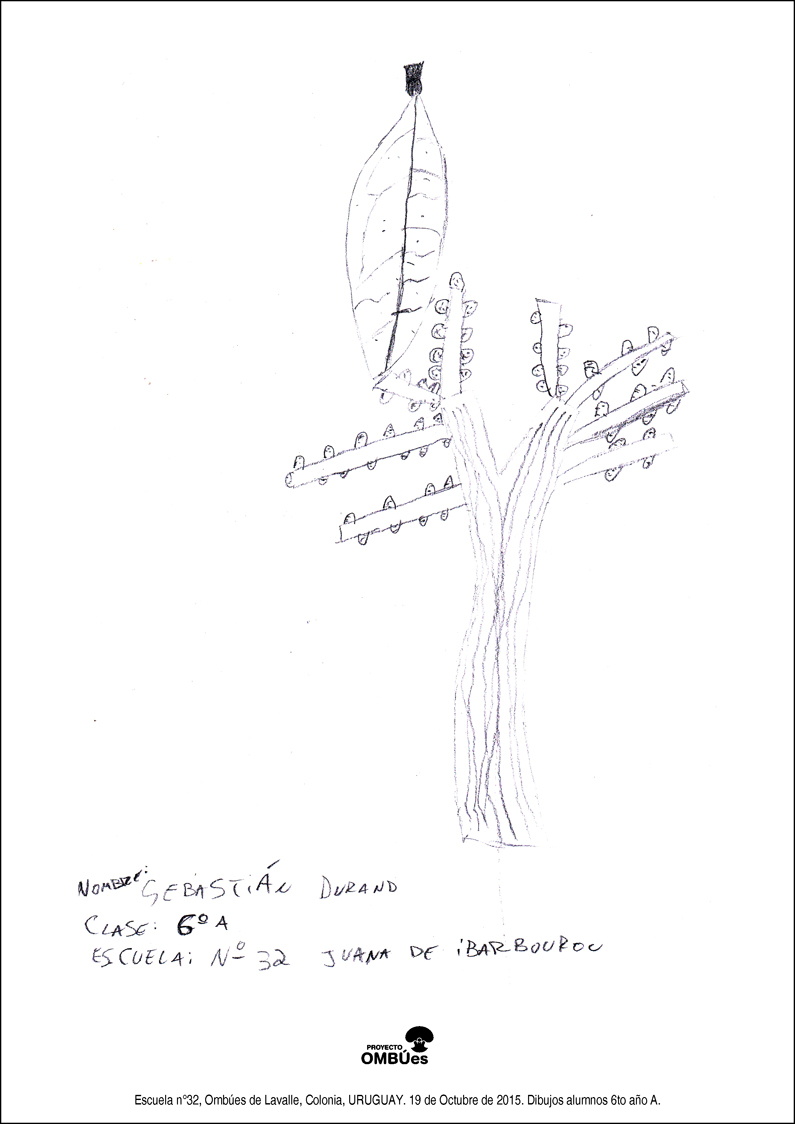 NOMBRE: SEBASTIÁN DURAND
CLASE: 6º A
ESCUELA: Nº 32 JUANA DE IBARBOUROU
PROYECTO
OMBÚes
Escuela n°32, Ombúes de Lavalle, Colonia, URUGUAY. 19 de Octubre de 2015. Dibujos alumnos 6to año A.